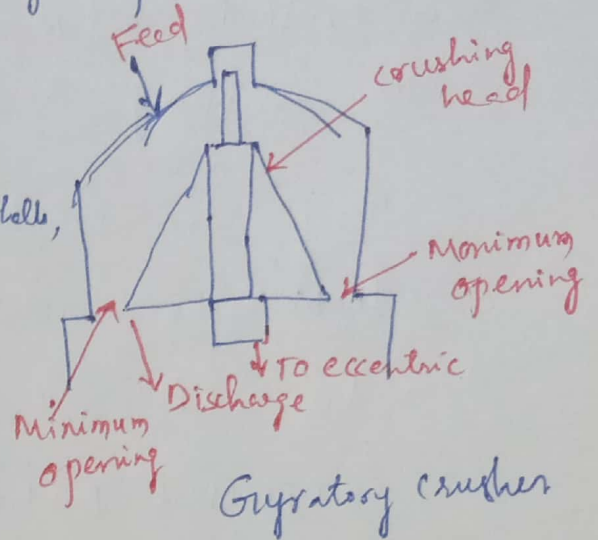 Feed
crushing
head
balls,
Monimum
opening
To eccentric
Discharge
Minimum
opening
Gyratory crusher